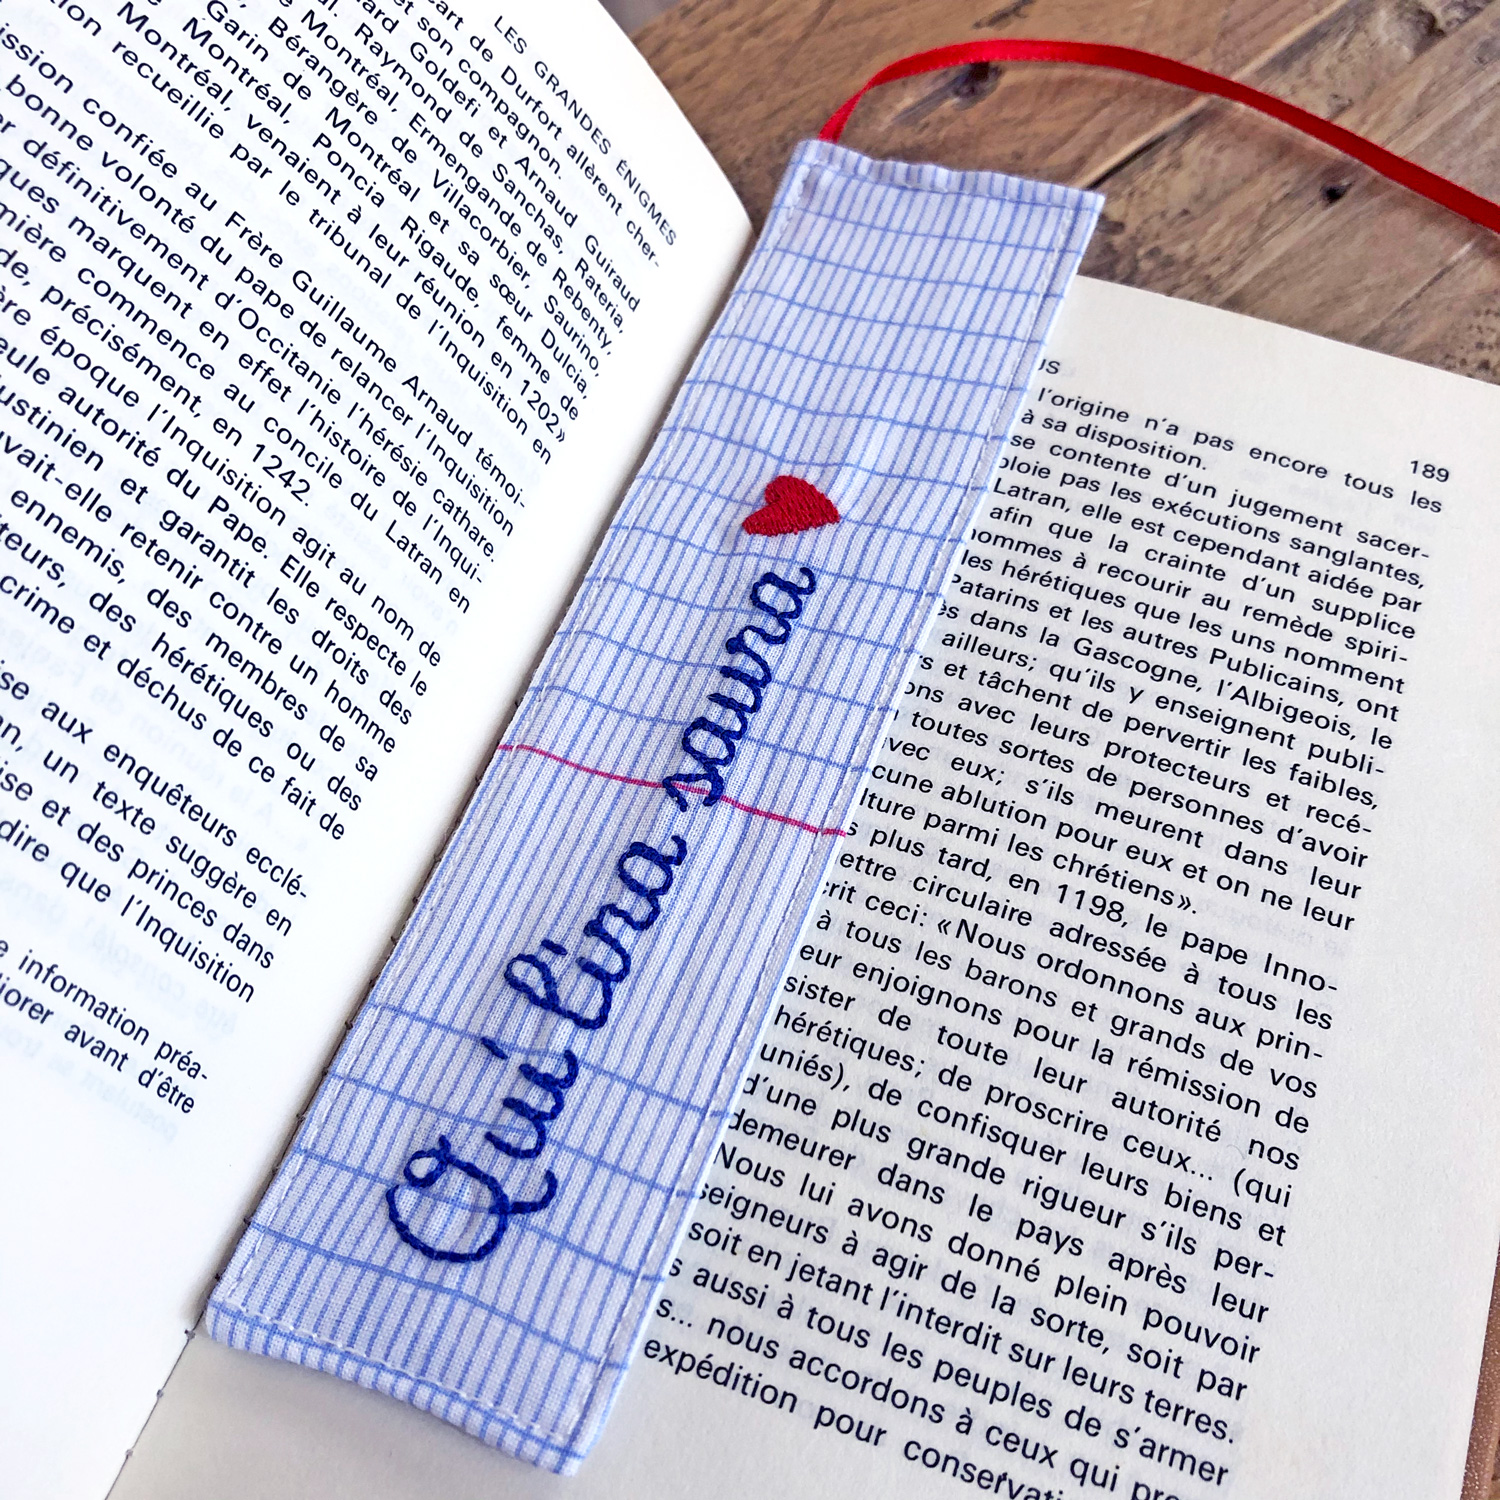 LES GRANDES ÉNIGMES
cart de Durfort allèrent cher-
et son compagnon.
Goldefi et Arnaud Guiraud
Raymond de Sanchas, Rateria,
Montréal, Ermengande de Rebenty,
Bérangère de Villacorbier, Saurino,
Garin de Montréal et sa sœur Dulcia,
Montréal, Poncia Rigaude, femme de
Montréal, venaient à leur réunion en 1202»
recueillie par le tribunal de l'Inquisition en
confiée au Frère Guillaume Arnaud témoi-
bonne volonté du pape de relancer l'Inquisition
définitivement d'Occitanie l'hérésie cathare.
marquent en effet l'histoire de l'Inqui-
commence au concile du Latran en
précisément, en 1242.
époque l'Inquisition agit au nom de
autorité du Pape. Elle respecte le
et garantit les droits des
-elle retenir contre un homme
ennemis, des membres de sa
des hérétiques ou des
crime et déchus de ce fait de
aux enquêteurs ecclé-
un texte suggère en
et des princes dans
dire que l'Inquisition
information préa-
avant d'être
Qui lina saura
189
l'origine n'a pas encore tous les
à sa disposition.
se contente d'un jugement sacer-
pas les exécutions sanglantes,
Latran, elle est cependant aidée par
afin que la crainte d'un supplice
hommes à recourir au remède spiri-
les hérétiques que les uns nomment
Patarins et les autres Publicains, ont
dans la Gascogne, l'Albigeois, le
ailleurs; qu'ils y enseignent publi-
et tâchent de pervertir les faibles,
avec leurs protecteurs et recé-
toutes sortes de personnes d'avoir
avec eux; s'ils meurent dans leur
ablution pour eux et on ne leur
parmi les chrétiens».
plus tard, en 1198, le pape Inno-
circulaire adressée à tous les
ceci: «Nous ordonnons aux prin-
à tous les barons et grands de vos
enjoignons pour la rémission de
de toute leur autorité nos
hérétiques; de proscrire ceux... (qui
de confisquer leurs biens et
d'une plus grande rigueur s'ils per-
demeurer dans le pays après leur
Nous lui avons donné plein pouvoir
seigneurs à agir de la sorte, soit par
soit en jetant l'interdit sur leurs terres.
aussi à tous les peuples de s'armer
nous accordons à ceux qui
expédition pour